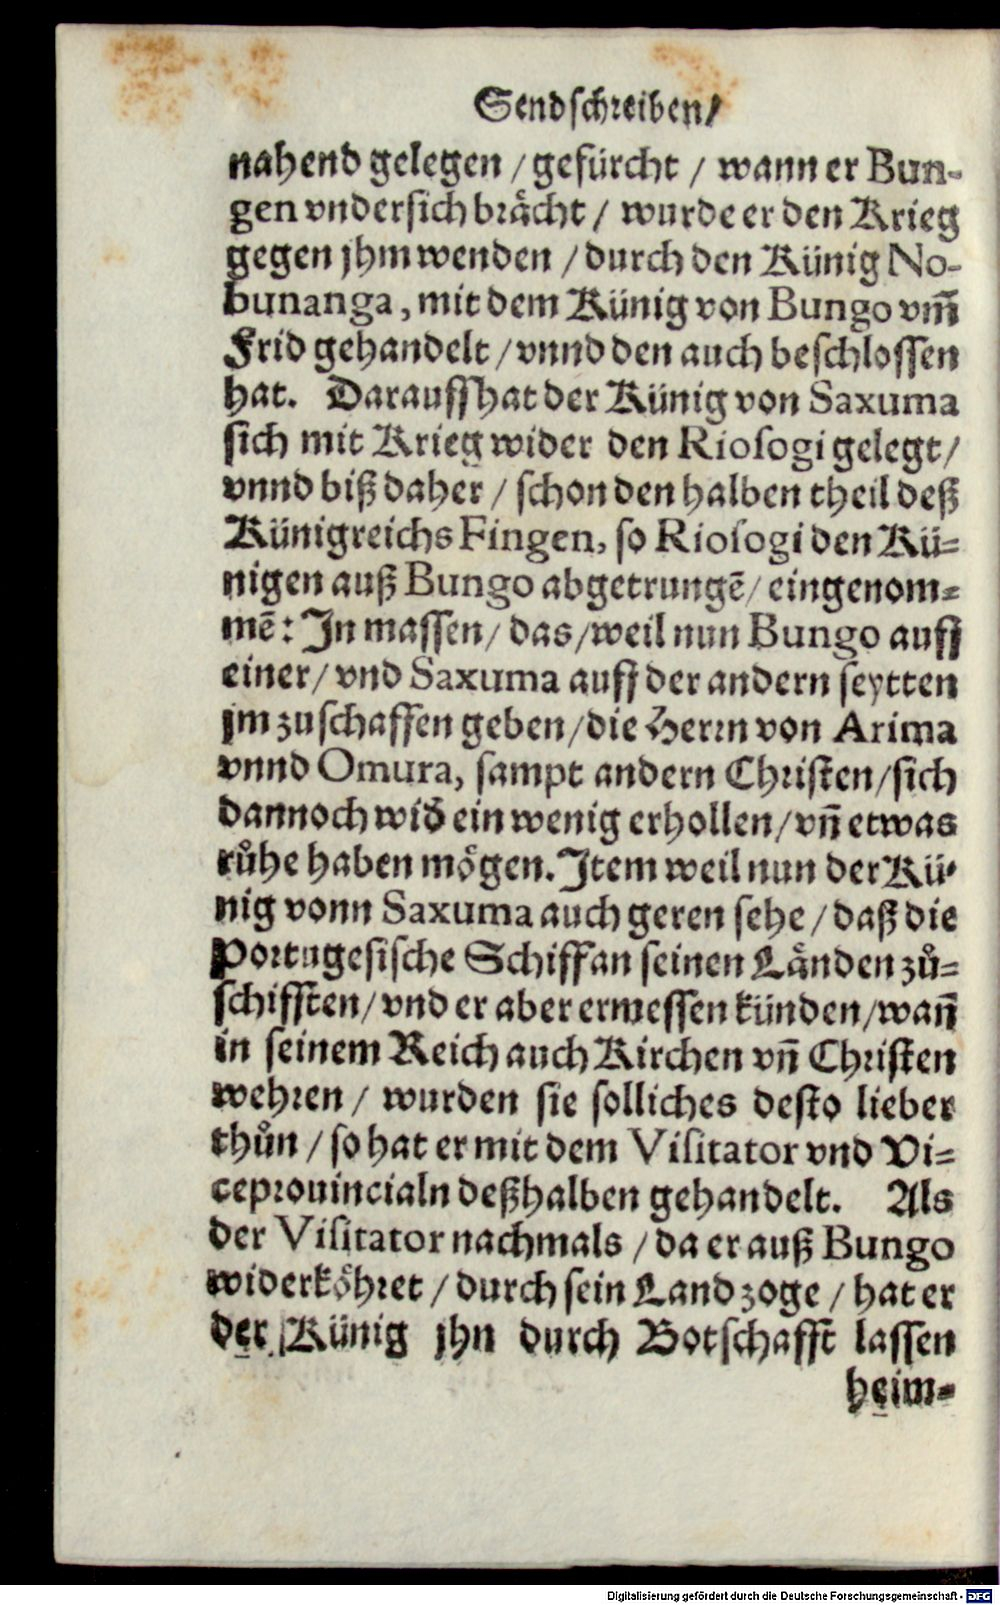 Sendschreiben/
nahend gelegen / gefürcht / wann er Bun-
gen vndersich brächt / wurde er den Krieg
gegen jhm wenden / durch den Künig No-
bunanga, mit dem Künig von Bungo vm̃
Frid gehandelt / vnnd den auch beschlossen
hat. Darauff hat der Künig von Saxuma
sich mit Krieg wider den Riosogi gelegt /
vnnd biß daher / schon den halben theil deß
Künigreichs Fingen, so Riosogi den Kü-
nigen auß Bungo abgetrungẽ / eingenom-
mẽ: In massen / das / weil nun Bungo auff
einer / vnd Saxuma auff der andern seytten
jm zuschaffen geben / die Herrn von Arima
vnnd Omura, sampt andern Christen / sich
dannoch wid̃ ein wenig erhollen / vñ etwas
růhe haben mögen. Item weil nun der Kü-
nig vonn Saxuma auch geren sehe / daß die
Portugesische Schiff an seinen Länden zů-
schifften / vnd er aber ermessen künden / wañ
in seinem Reich auch Kirchen vñ Christen
wehren / wurden sie solliches desto lieber
thůn / so hat er mit dem Visitator vnd Vi-
ceprouincialn deßhalben gehandelt. Als
der Visitator nachmals / da er auß Bungo
widerköhret / durch sein Land zoge / hat er
der Künig jhn durch Botschafft lassen
heim-
Digitalisierung gefördert durch die Deutsche Forschungsgemeinschaft - DFG